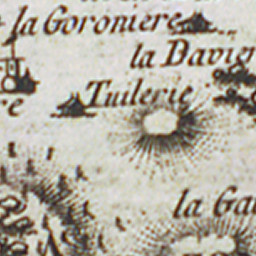 la Goroniere
la Davier
re
Tuilerie
la Ga